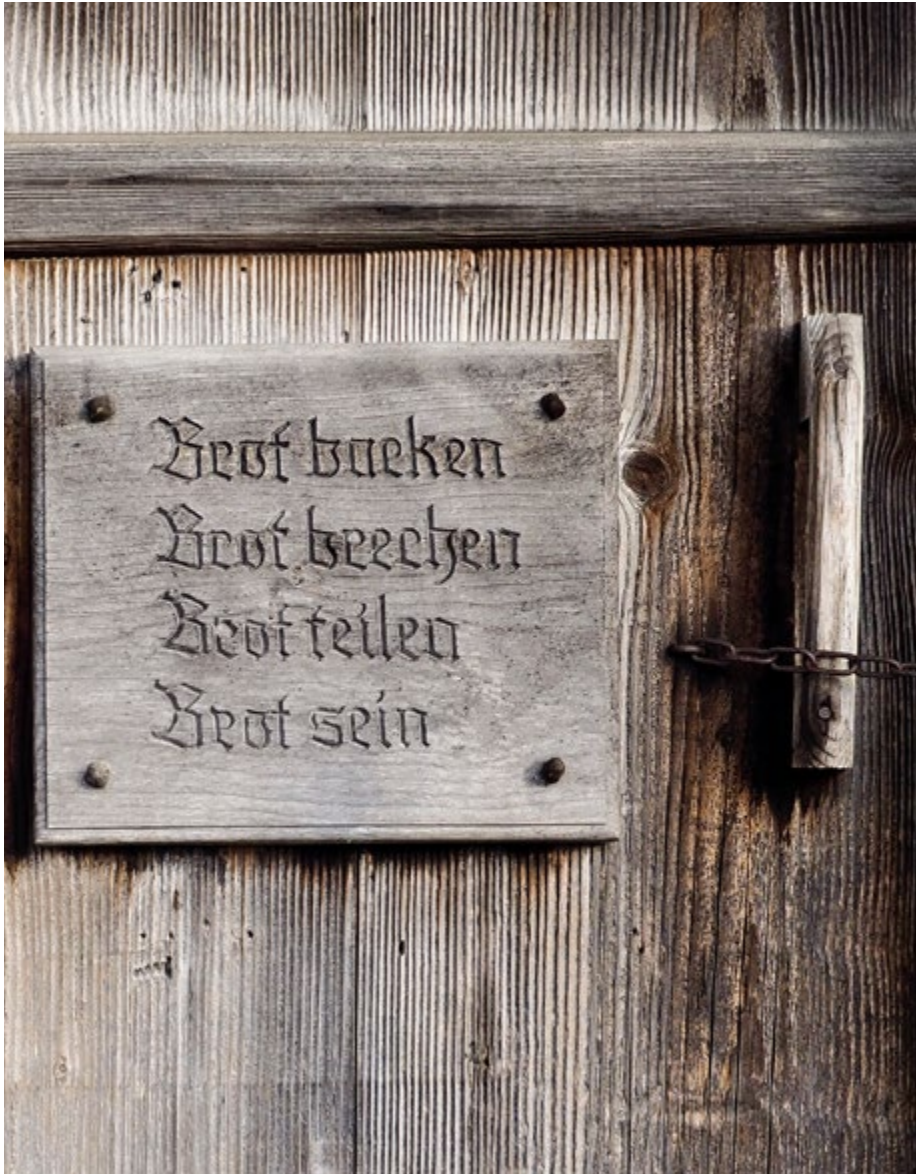 Brot backen
Brot brechen
Brot teilen
Brot sein